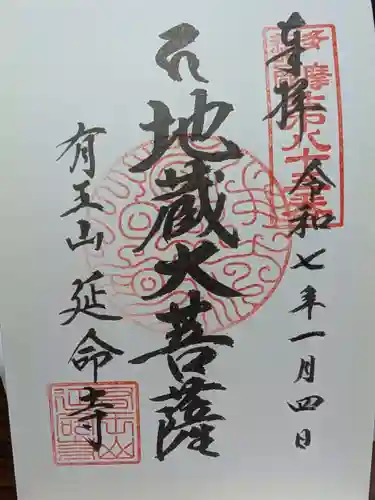 奉拝
令和七年一月四日
地蔵大菩薩
有王山
延命寺